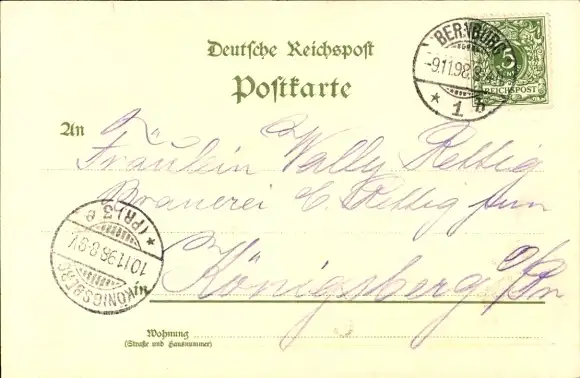 Deutsche Reichspost
Postkarte
BERNBURG
-9.11.98.8-
* 1 b
5
REICHSPOST
An
Fräulein Wally Rettig
Brauerei C. Rettig jun
in Königsberg o/Pr
KÖNIGSBERG
10.11.98.8-9V
* (PR) 3 e
Wohnung
(Straße und Hausnummer)